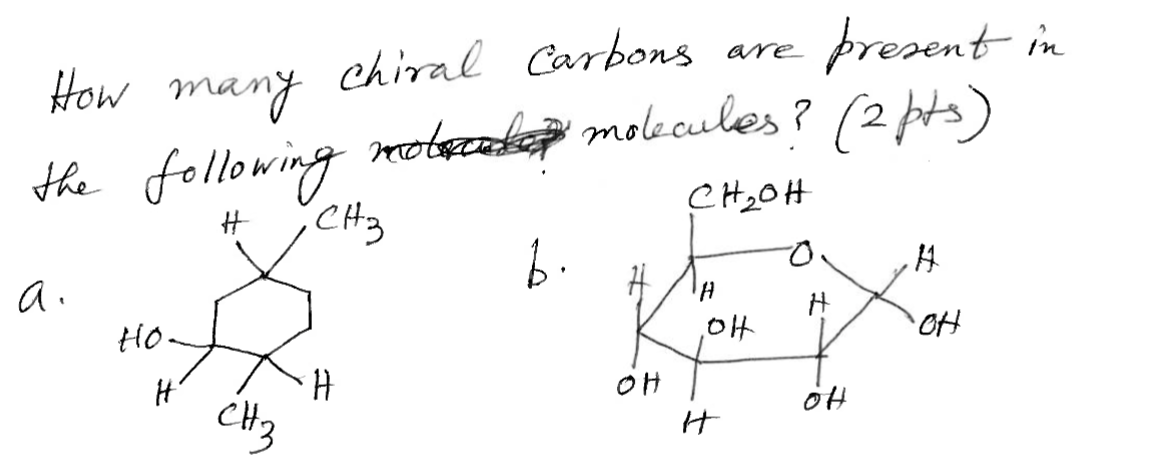 How many chiral carbons are present in
the following molecules? (2 pts)
a.
H
CH3
HO
H
CH3
H
b.
CH2OH
O
H
H
H
OH
H
OH
OH
H
OH